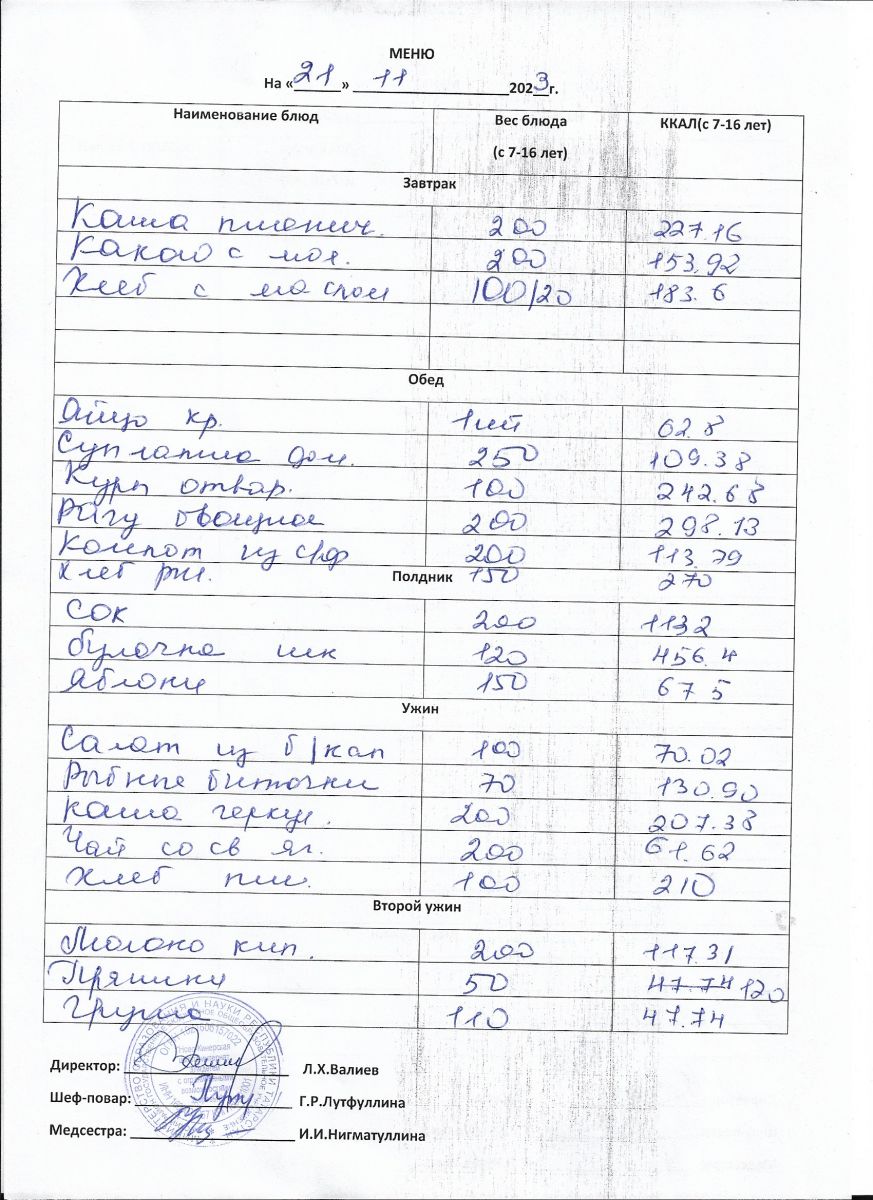 МЕНЮ
На «21» 11 2023 г.
Наименование блюд Вес блюда (с 7-16 лет) ККАЛ(с 7-16 лет)
Завтрак
Каша пшенич. 200 227.16
Какао с мол. 200 153,92
Хлеб с маслом 100/20 183.6
Обед
Яйцо кр. 1шт 62.8
Суп лапша дом. 250 109.38
Куры отвар. 100 242.68
Рагу овощное 200 298.13
Компот из с/ф 200 113.79
Хлеб рж. 150 270
Полдник
Сок 200 113 2
булочка шк 120 456.4
яблоки 150 67 5
Ужин
Салат из б/кап 100 70.02
Рыбные биточки 70 130.90
каша геркул. 200 207.38
Чай со св яг. 200 61.62
Хлеб пш. 100 210
Второй ужин
Молоко кип. 200 117.31
Пряники 50 47.74 120
Груша 110 47.74
Директор: Л.Х.Валиев
Шеф-повар: Г.Р.Лутфуллина
Медсестра: И.И.Нигматуллина